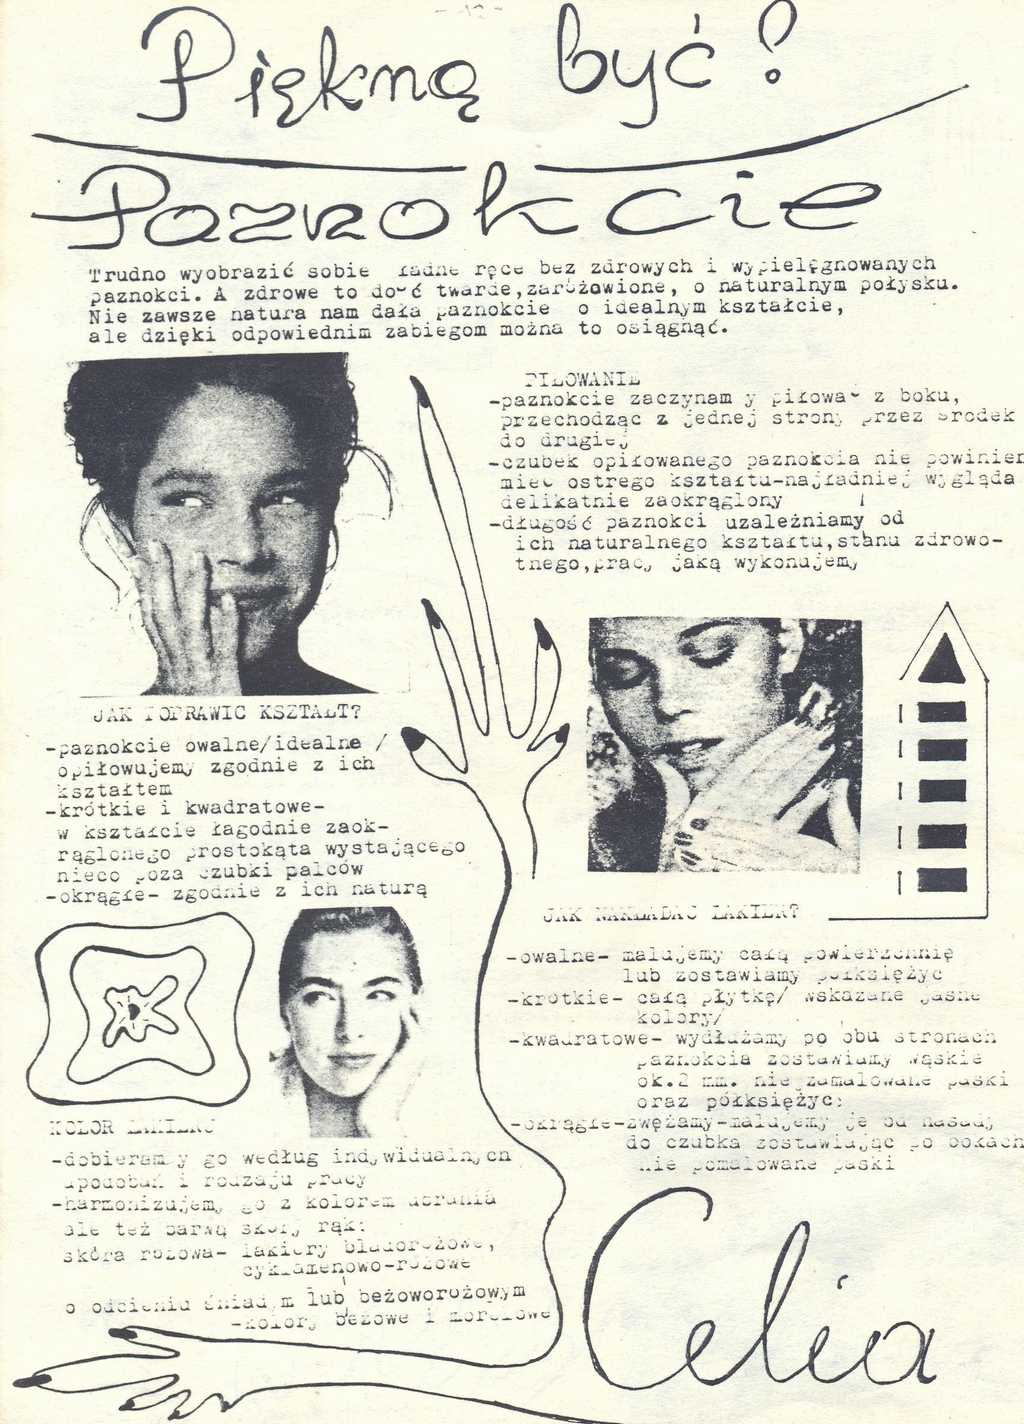 - 12 -
Piękną być?
Paznokcie
Trudno wyobrazić sobie ładne ręce bez zdrowych i wypielęgnowanych
paznokci. A zdrowe to dość twarde,zaróżowione, o naturalnym połysku.
Nie zawsze natura nam dała paznokcie o idealnym kształcie,
ale dzięki odpowiednim zabiegom można to osiągnąć.
PIŁOWANIE
-paznokcie zaczynamy piłować z boku,
przechodząc z jednej strony przez środek
do drugiej
-czubek opiłowanego paznokcia nie powinien
mieć ostrego kształtu-najładniej wygląda
delikatnie zaokrąglony
-długość paznokci uzależniamy od
ich naturalnego kształtu,stanu zdrowo-
tnego,pracy jaką wykonujemy
JAK POPRAWIC KSZTAŁT?
-paznokcie owalne/idealne /
opiłowujemy zgodnie z ich
kształtem
-krótkie i kwadratowe-
w kształcie łagodnie zaok-
rąglonego prostokąta wystającego
nieco poza czubki palców
-okrągłe- zgodnie z ich naturą
JAK NAKŁADAC LAKIER?
-owalne- malujemy całą powierzchnię
lub zostawiamy półksiężyc
-krótkie- całą płytkę/ wskazane jasne
kolory/
-kwadratowe- wydłużamy po obu stronach
paznokcia zostawiamy wąskie
ok.2 mm. nie zamalowane paski
oraz półksiężyc;
-okrągłe-zwężamy-malujemy je od nasady
do czubka zostawiając po bokach
nie pomalowane paski
KOLOR LAKIERU
-dobieramy go według indywidualnych
upodobań i rodzaju pracy
-harmonizujemy go z kolorem ubrania
ale też barwą skóry rąk:
skóra różowa- lakiery bladoróżowe,
cyklamenowo-różowe
o odcieniu śniadym lub beżoworóżowym
-kolory beżowe i morelowe
Celia